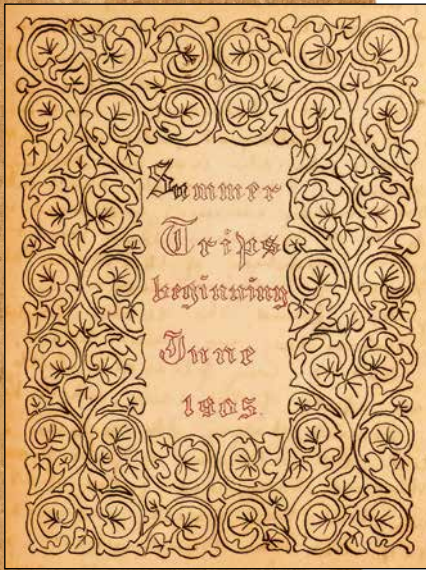 Summer
Trips
beginning
June
1905.